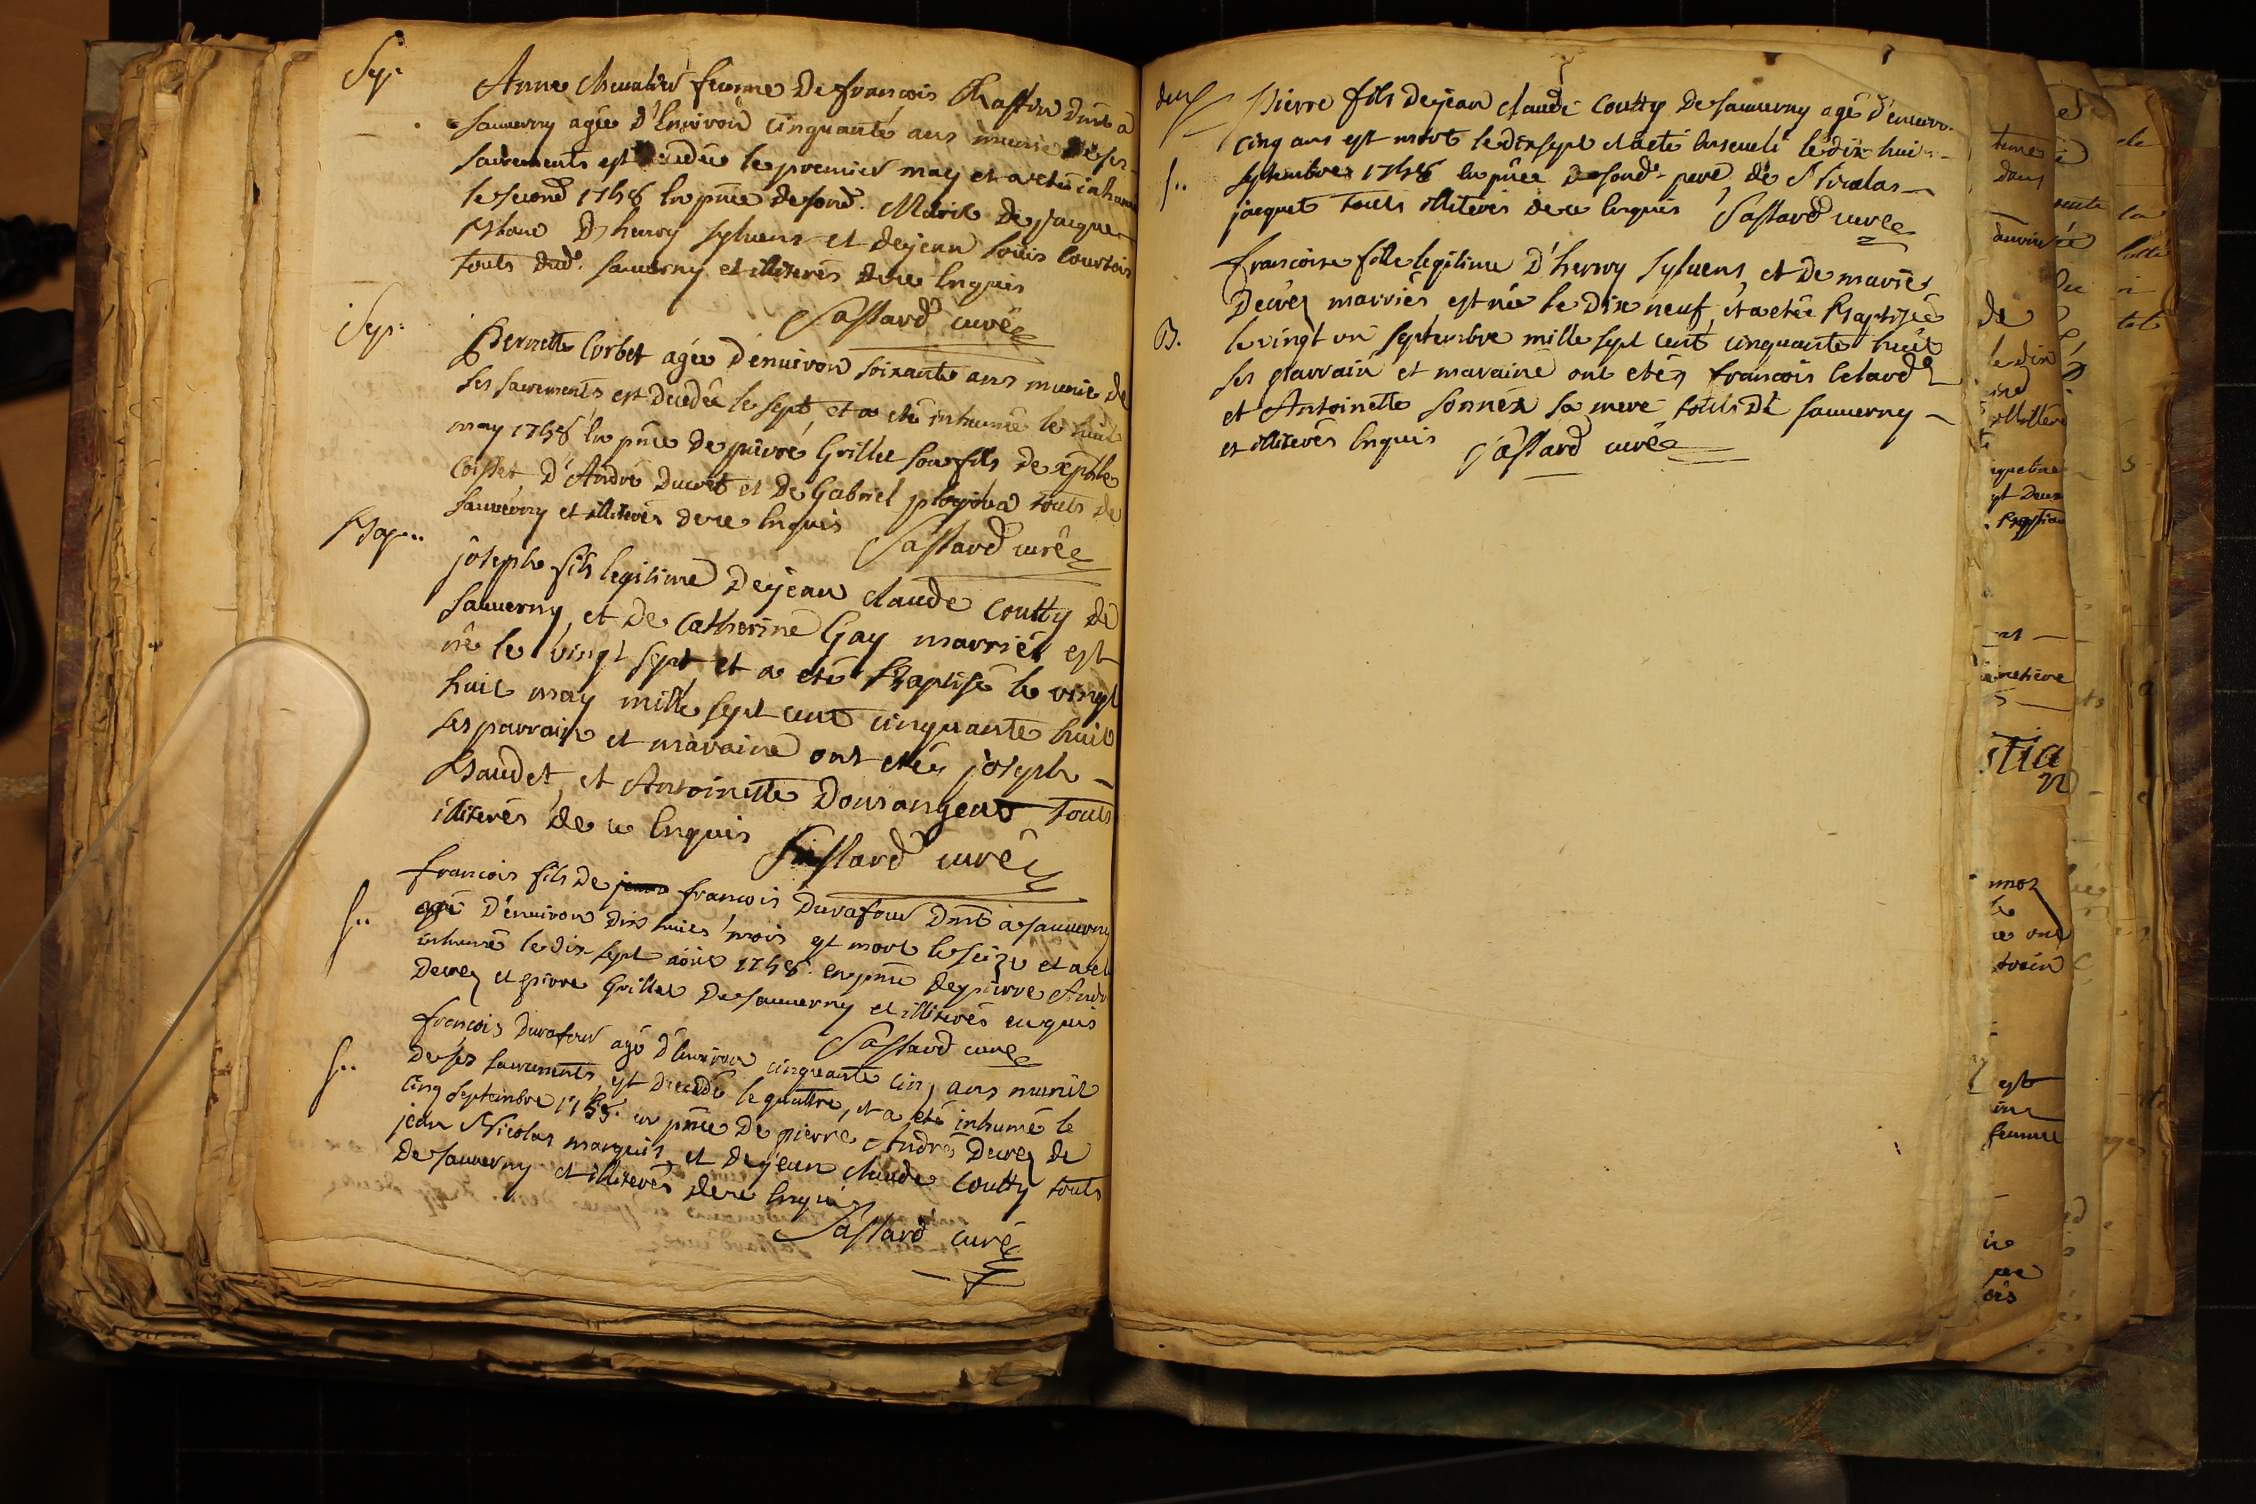 Sep:
Anne Chevalier femme De francois Raffin Dmt à
Sauverny agée d'Environ cinquante ans munie de ses
sacrements est decedée le premier may et a eté inhumé
le second 1758 En pñce de fond. Marie De jacque
D'henry Sylvens et de jean Louis Courtois
touts dud. Sauverny et illiterés de ce Enquis
Sastard curé
Sep:
Pernette Corbet agée d'environ soixante ans munie de
ses sacrements est decedée le sept, et a eté inhumée le huit
may 1758 En pñce de pierre Grillet son fils de
D'André Ducret et De Gabriel touts de
Sauverny et illiterés de ce Enquis
Sastard curé
Bap..
joseph fils legitime De jean claude Coutty de
Sauverny, et de Catherine Gay marriés est
né le vingt sept et a eté Baptisé le vingt
huit may mille sept cent cinquante huit
ses parrain et maraine ont etés joseph
Baudet, et Antoinette Dousangeat touts
illiterés de ce Enquis
Sastard curé
S..
francois fils de francois Durafour Dmt à Sauverny
agé D'environ dix huict mois est mort le seize et a eté
inhumé le dix-sept aôut 1758. en pñce de pierre André
Decrez et pierre Grillet De Sauverny et illiterés enquis
Sastard curé
S..
françois Durafour agé d'Environ cinquante cinq ans munit
de ses sacrements, est decedé le quattre, et a eté inhumé le
cinq septembre 1758. en pñce De pierre André Decrez de
jean Nicolas marquis et De jean claude Coutty touts
de Sauverny et illiterés de ce Enquis
Sastard curé
Pierre fils de jean claude Coutty De Sauverny agé d'environ
cinq ans est mort le dixsept et a eté Enseveli le dix huit
S..
septembre 1758 En pñce De fond. pere, de Nicolas
jacquet touts illiterés de ce Enquis Sastard curé
francoise fille legitime D'henry Sylvens, et De mariés
Decrez marriés est née le Dix neuf, et a etée Baptisée
B.
le vingt un septembre mille sept cent cinquante huit
ses parrain et maraine ont etés francois
et Antoinette Sonnex sa mere touts de Sauverny
et illiterés Enquis Sastard curé